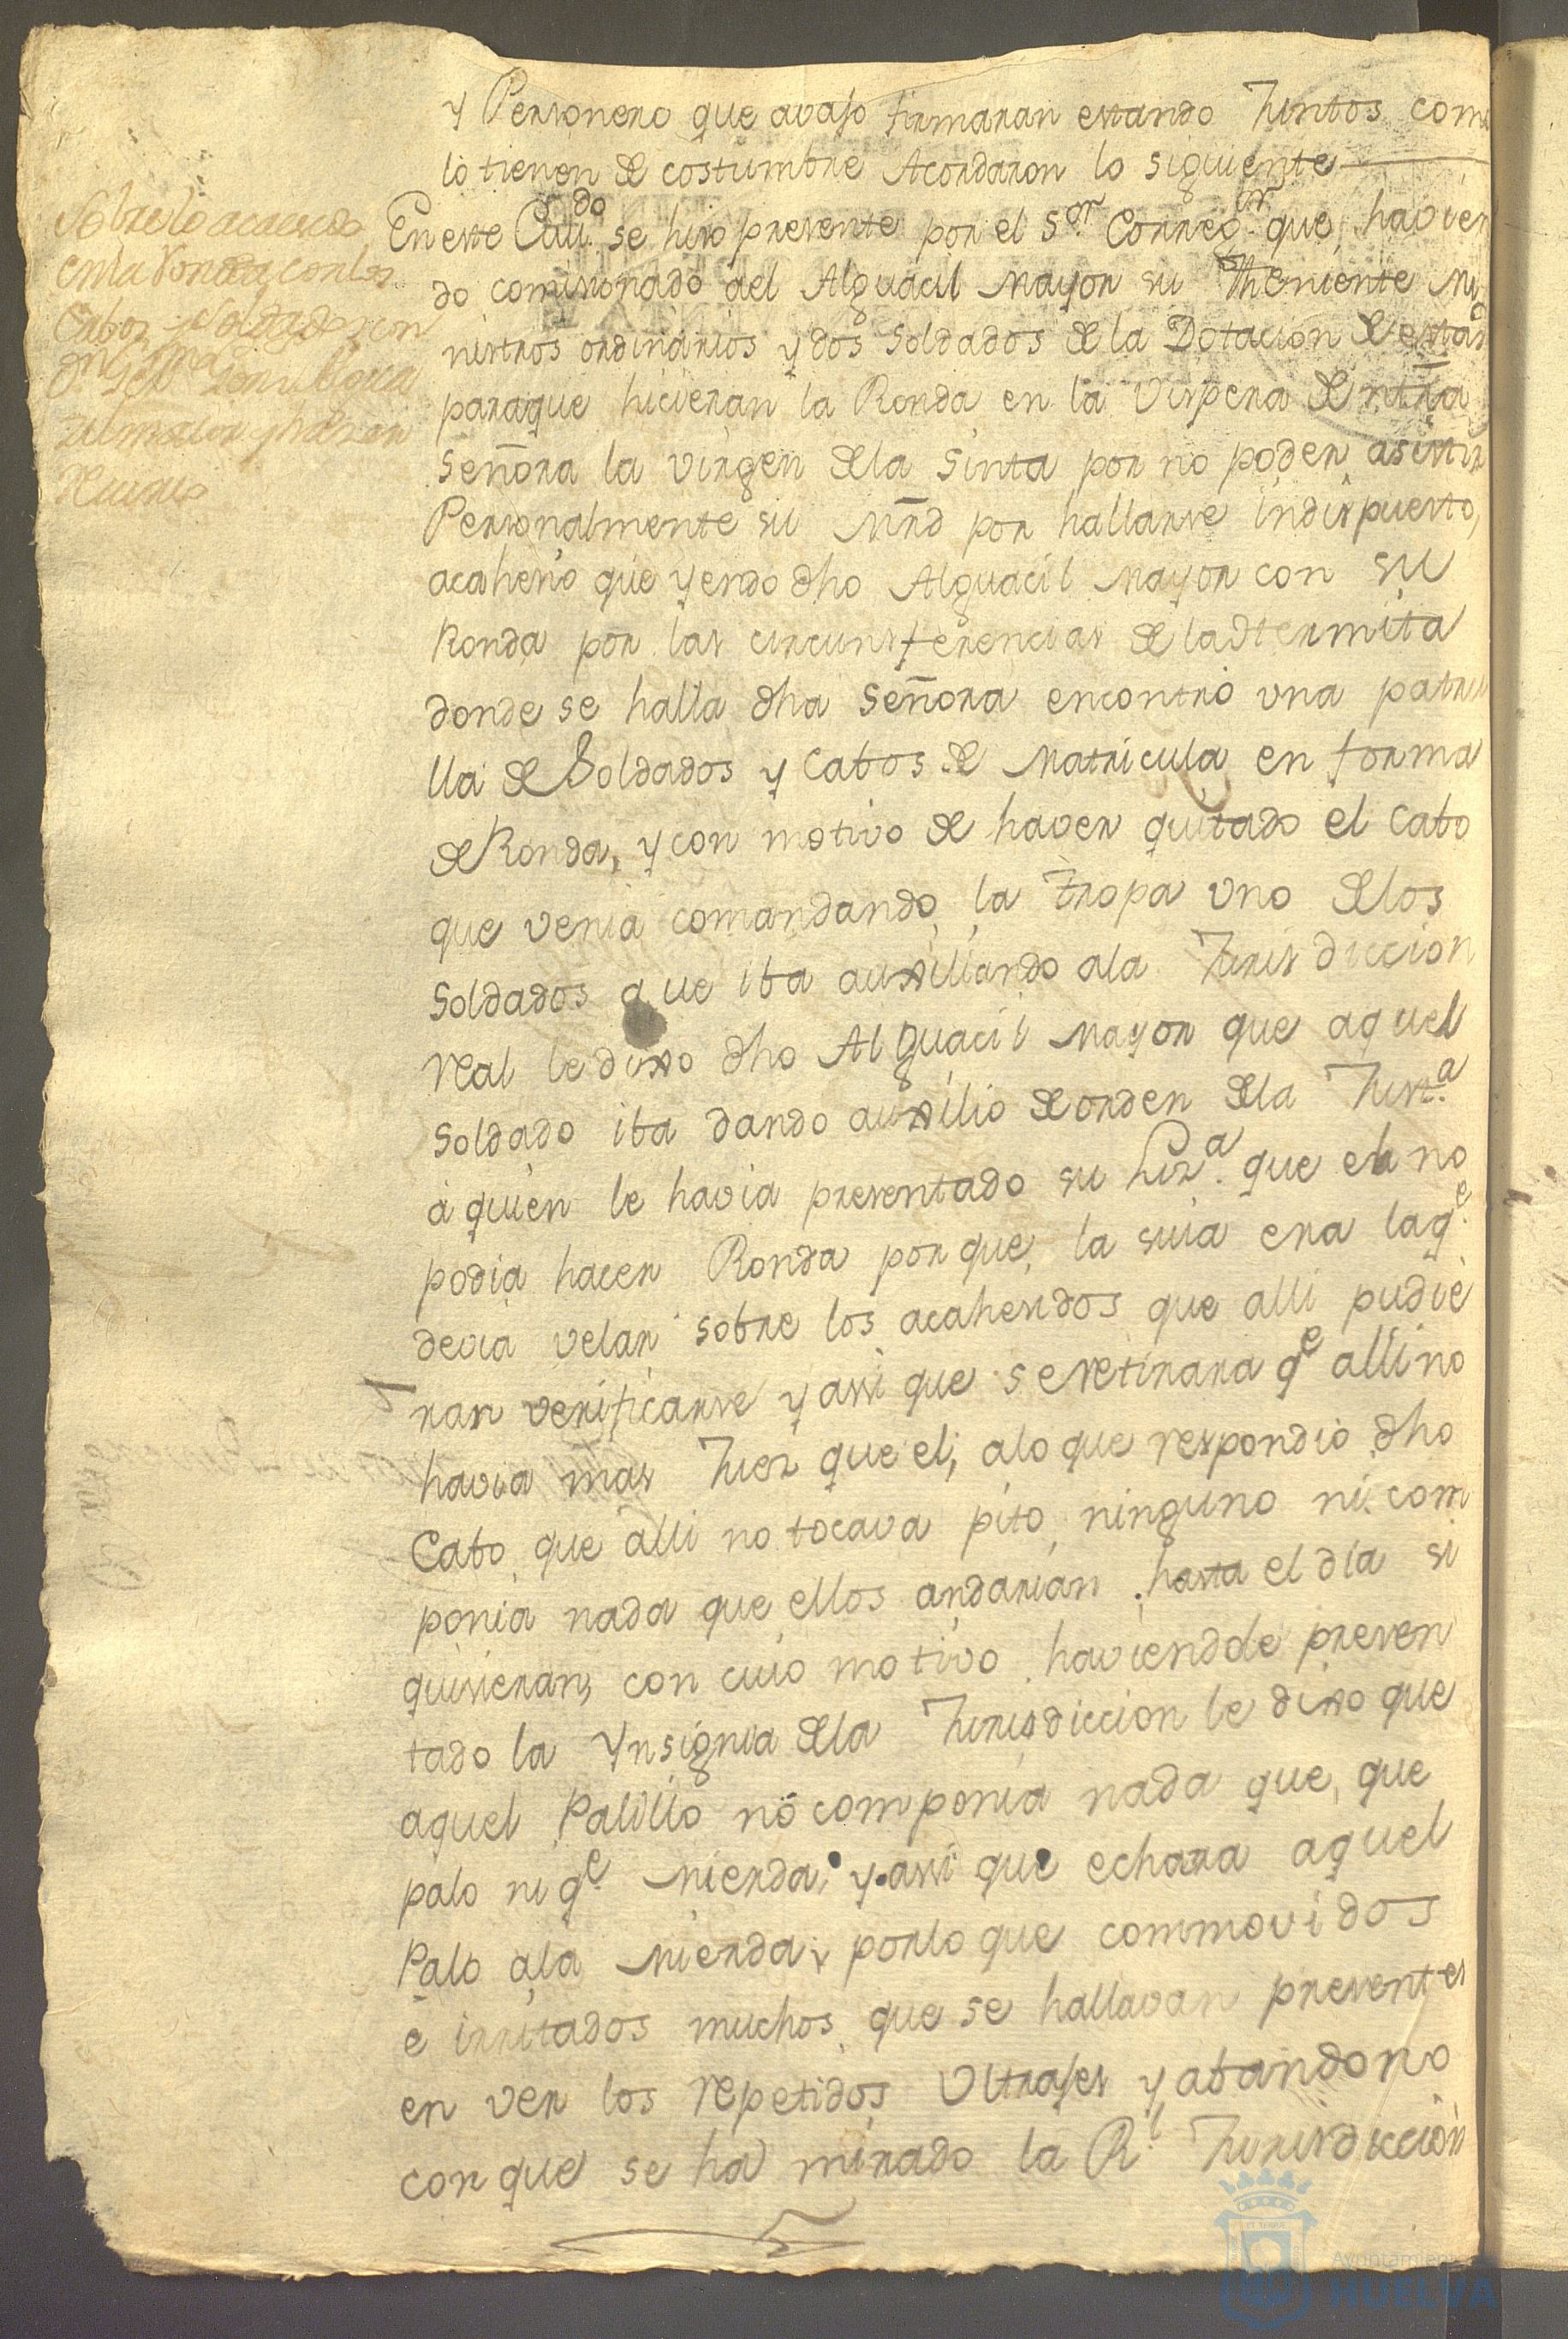 y Personero que avajo firmaran estando Juntos como
lo tienen de costumbre Acordaron lo siguiente
Sobre lo acaecido
en la Ronda con los
Cabos y Soldados
En este Cav.do se hiso presente por el S.or Correg.or que havien
do comisionado del Alguacil Mayor su Theniente Mi
nistros ordinarios y dos Soldados de la Dotacion de esta
paraque hicieran la Ronda en la Vispera de ntra
Señora la virgen de la Sinta por no poder asistir
Personalmente su Mrd por hallarse indispuesto,
acahesio que yendo dho Alguacil Mayor con su
Ronda por las circunsferencias de la Hermita
donde se halla dha Señora encontró una patru
lla de Soldados y Cabos de Matricula en forma
de Ronda, y con motivo de haver quitado el Cabo
que venia comandando la tropa uno de los
Soldados que iba auxiliando ala Jurisdiccion
real le dixo dho Alguacil Mayor que aquel
Soldado iba dando auxilio de orden de la Just.a
a quien le havia presentado su Liz.a que el no
podia hacer Ronda porque la suia era la q.e
devia velar sobre los acahesidos que alli pudie
ran verificarse y assi que se retirara q.e alli no
havia mas Juez que el; alo que respondió dho
Cabo que alli no tocava pito ninguno ni com
ponia nada que ellos andarian hasta el dia si
quisieran, con cuio motivo haviendole presen
tado la Ynsignia de la Jurisdiccion le dixo que
aquel Palillo no componia nada que, que
palo ni q.e Mierda, y assi que echara aquel
Palo ala Mierda, por lo que commovidos
e irritados muchos que se hallavan presentes
en ver los repetidos Ultrajes y abandono
con que se ha mirado la R.l Jurisdiccion
Ayuntamiento
HUELVA